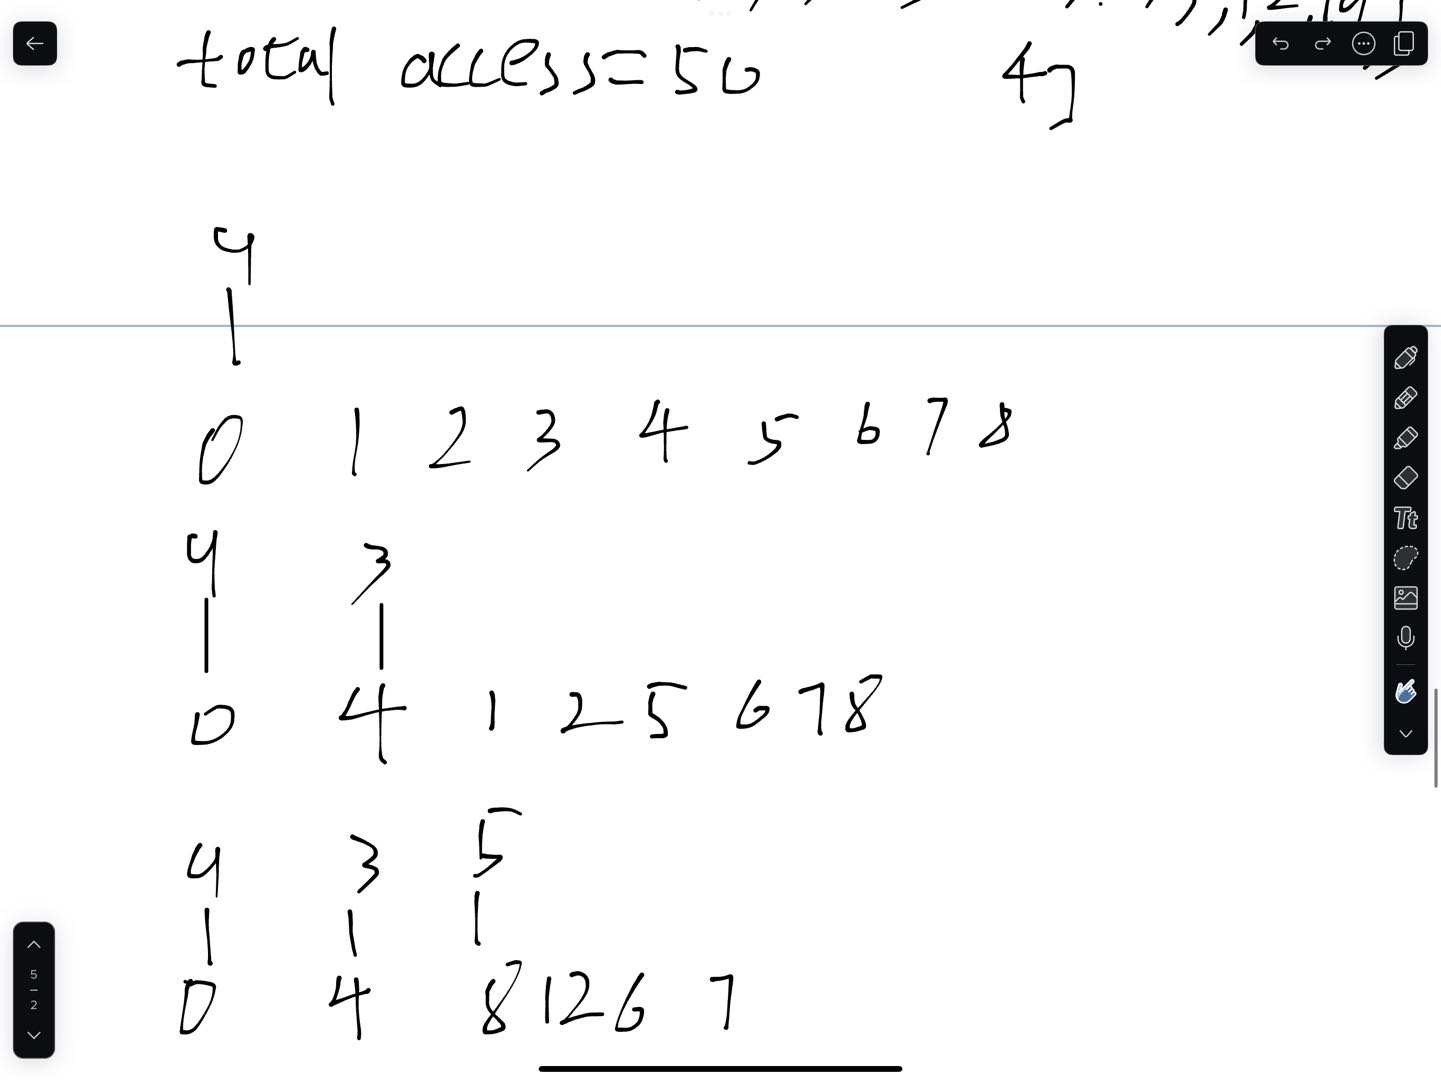 total access=50
4]
4
0 1 2 3 4 5 6 7 8
4 3
0 4 1 2 5 6 7 8
4 3 5
0 4 8 1 2 6 7
Tt
5
2